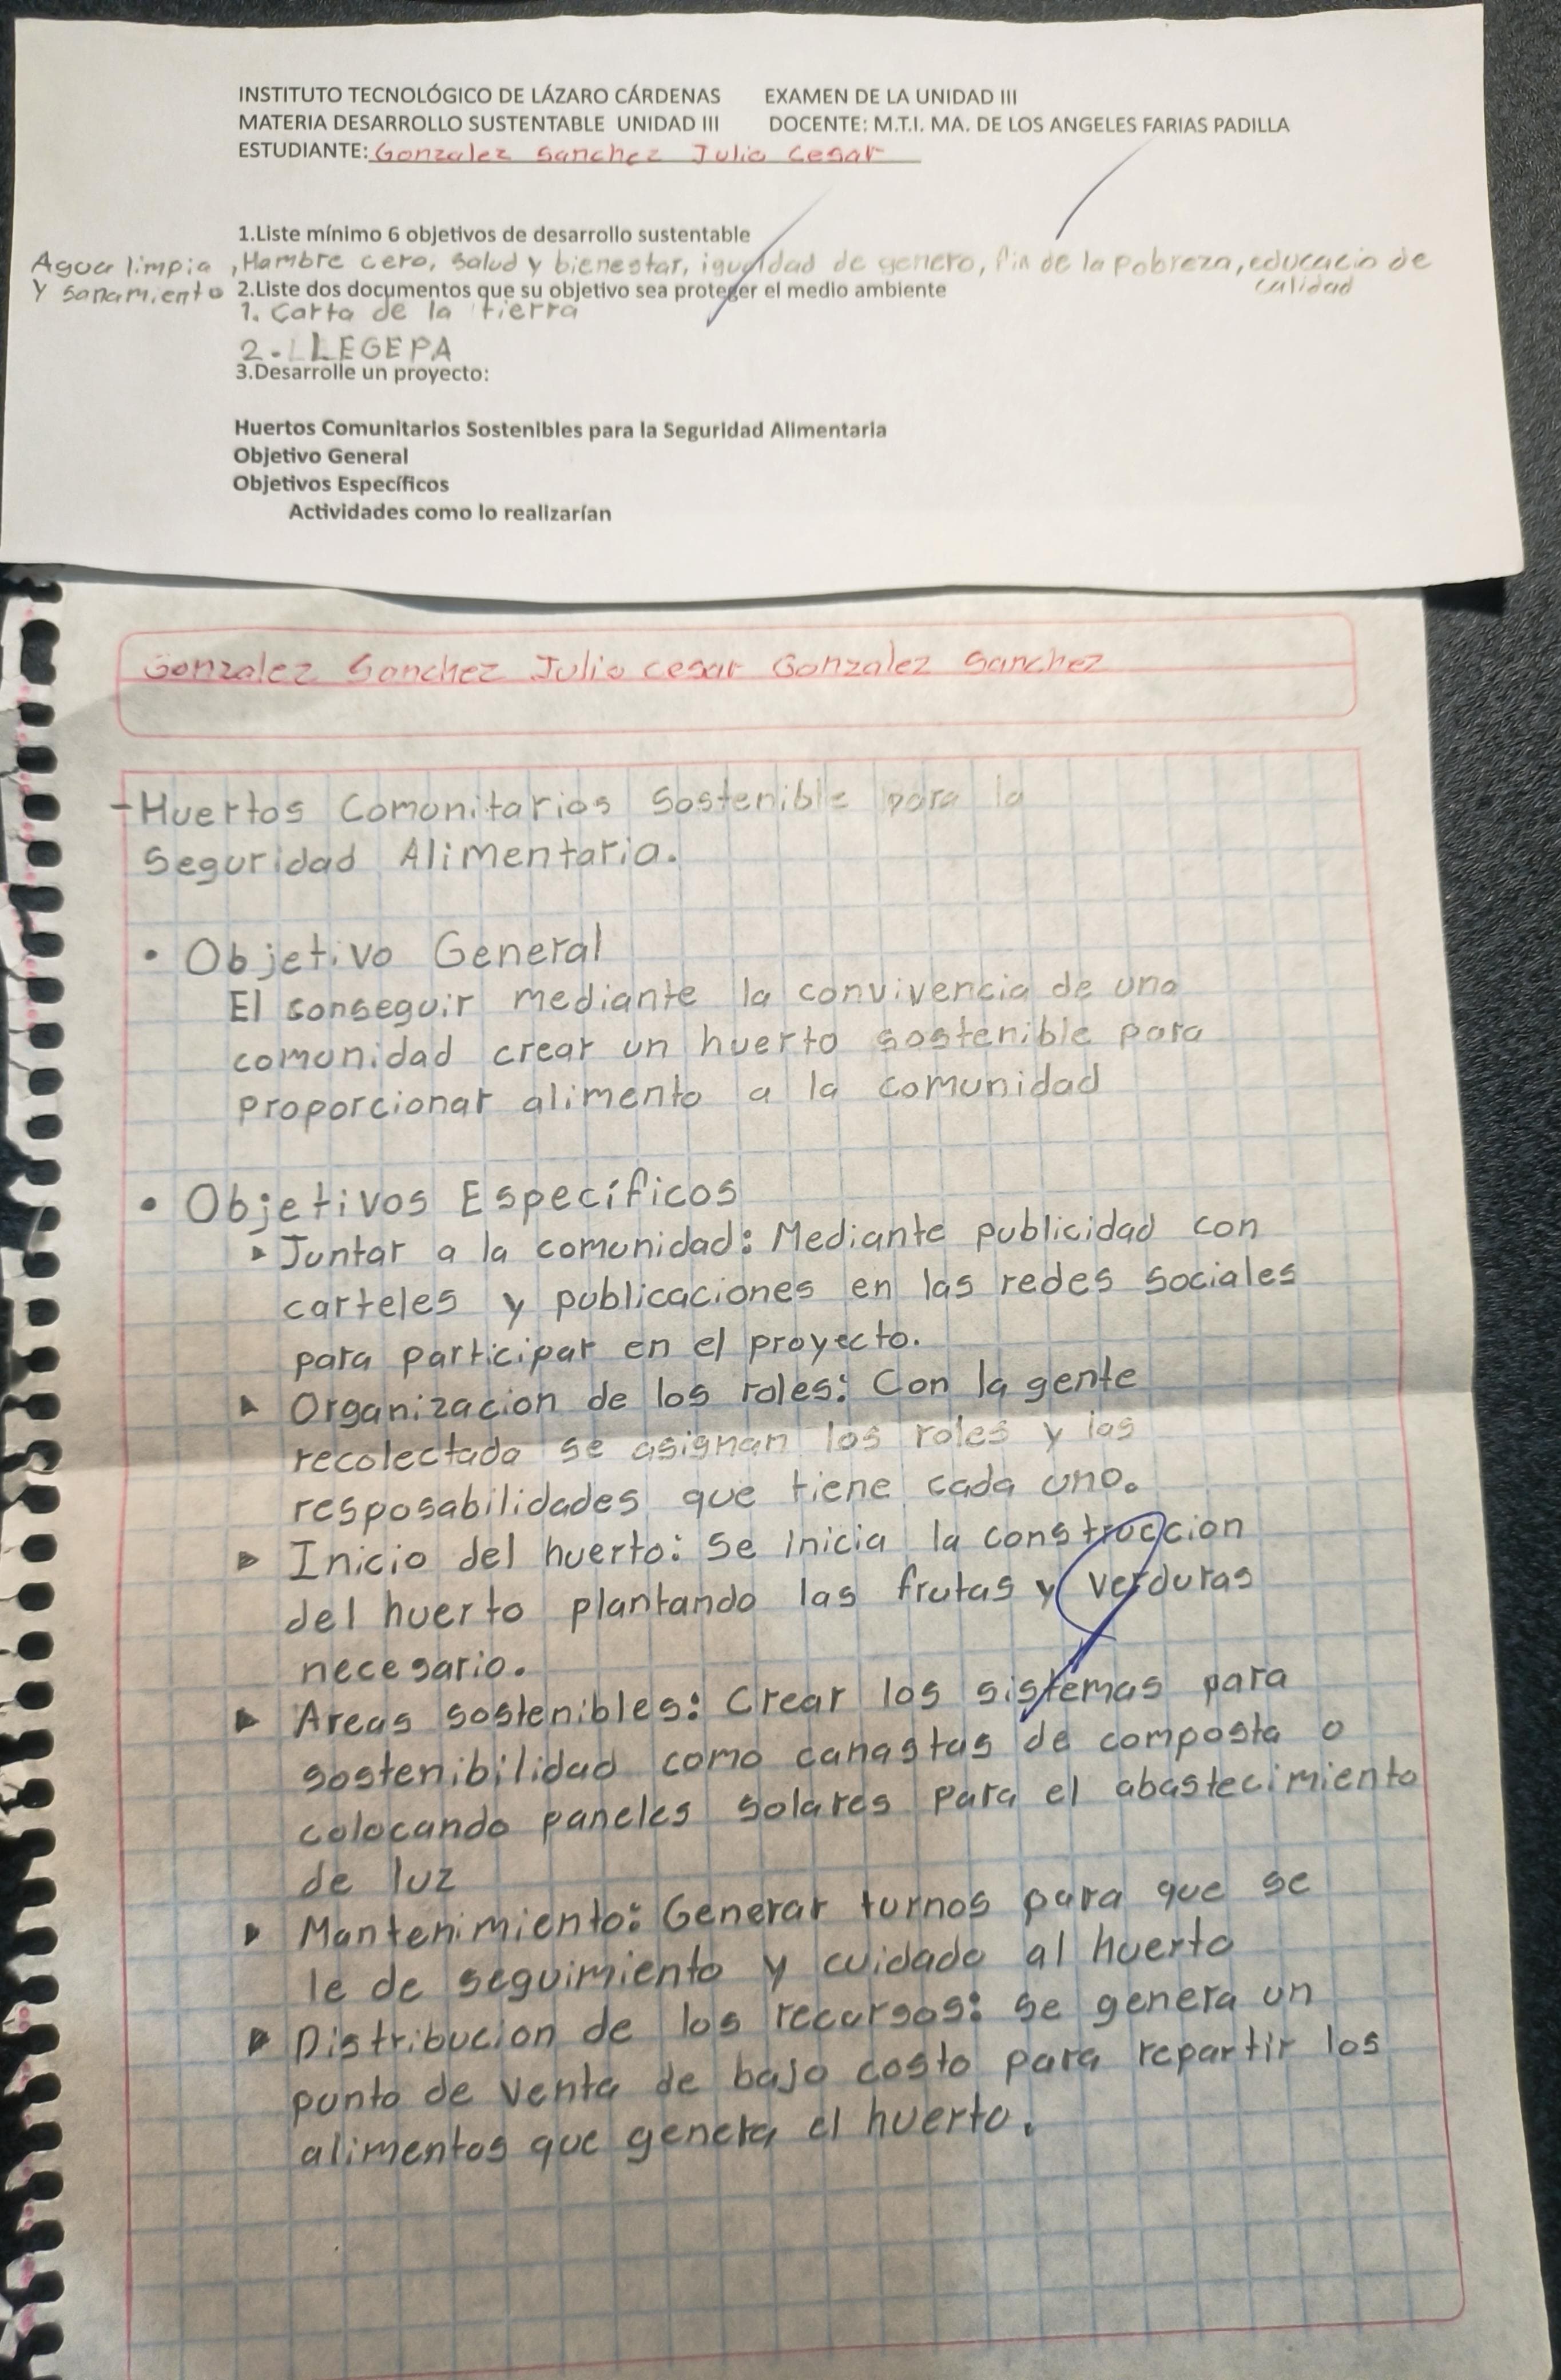 INSTITUTO TECNOLÓGICO DE LÁZARO CÁRDENAS EXAMEN DE LA UNIDAD III
MATERIA DESARROLLO SUSTENTABLE UNIDAD III DOCENTE: M.T.I. MA. DE LOS ANGELES FARIAS PADILLA
ESTUDIANTE: Gonzalez Sanchez Julio Cesar
1.Liste mínimo 6 objetivos de desarrollo sustentable
Agua limpia, Hambre cero, Salud y bienestar, igualdad de genero, fin de la pobreza, educacio de
y sanamiento 2.Liste dos documentos que su objetivo sea proteger el medio ambiente calidad
1. Carta de la tierra
2. LLEGEPA
3.Desarrolle un proyecto:
Huertos Comunitarios Sostenibles para la Seguridad Alimentaria
Objetivo General
Objetivos Específicos
Actividades como lo realizarían
Gonzalez Sanchez Julio cesar Gonzalez Sanchez
-Huertos Comunitarios Sostenible para la
Seguridad Alimentaria.
• Objetivo General
El conseguir mediante la convivencia de una
comunidad crear un huerto sostenible para
proporcionar alimento a la comunidad
• Objetivos Específicos
▸ Juntar a la comunidad: Mediante publicidad con
carteles y publicaciones en las redes sociales
para participar en el proyecto.
▸ Organizacion de los roles: Con la gente
recolectada se asignan los roles y las
resposabilidades que tiene cada uno.
▸ Inicio del huerto: Se inicia la construccion
del huerto plantando las frutas y verduras
necesario.
▸ Areas sostenibles: Crear los sistemas para
sostenibilidad como canastas de composta o
colocando paneles solares para el abastecimiento
de luz
▸ Mantenimiento: Generar turnos para que se
le de seguimiento y cuidado al huerto
▸ Distribucion de los recursos: se genera un
punto de venta de bajo costo para repartir los
alimentos que genera el huerto.